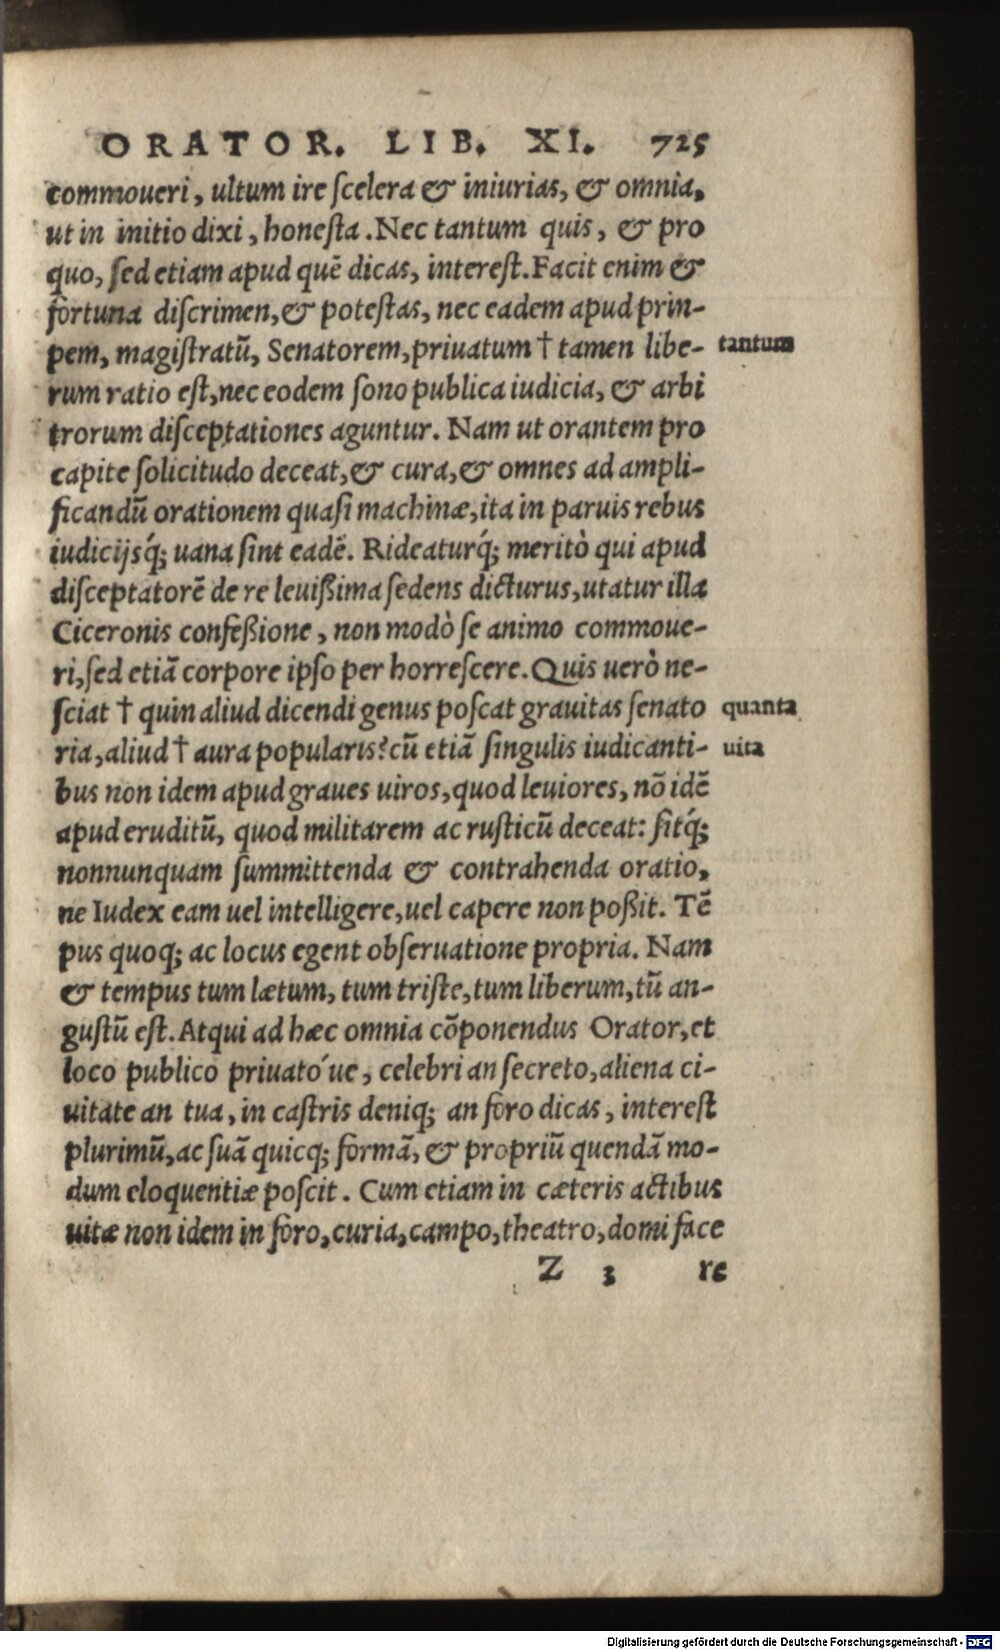 ORATOR. LIB. XI. 725
commoueri, ultum ire ſcelera & iniurias, & omnia,
ut in initio dixi, honeſta. Nec tantum quis, & pro
quo, ſed etiam apud quē dicas, intereſt. Facit enim &
fortuna diſcrimen, & poteſtas, nec eadem apud prin-
pem, magiſtratū, Senatorem, priuatum † tamen libe- tantum
rum ratio eſt, nec eodem ſono publica iudicia, & arbi
trorum diſceptationes aguntur. Nam ut orantem pro
capite ſolicitudo deceat, & cura, & omnes ad ampli-
ficandū orationem quaſi machinæ, ita in paruis rebus
iudicijsq́; uana ſint eadē. Rideaturq́; meritò qui apud
diſceptatorē de re leuißima ſedens dicturus, utatur illa
Ciceronis confeßione, non modò ſe animo commoue-
ri, ſed etiā corpore ipſo per horreſcere. Quis uerò ne-
ſciat † quin aliud dicendi genus poſcat grauitas ſenato quanta
ria, aliud † aura popularis? cū etiā ſingulis iudicanti- uita
bus non idem apud graues uiros, quod leuiores, nō idē
apud eruditū, quod militarem ac ruſticū deceat: ſitq́;
nonnunquam ſummittenda & contrahenda oratio,
ne Iudex eam uel intelligere, uel capere non poßit. Tē
pus quoq; ac locus egent obſeruatione propria. Nam
& tempus tum lætum, tum triſte, tum liberum, tū an-
guſtū eſt. Atqui ad hæc omnia cōponendus Orator, et
loco publico priuato ́ue, celebri an ſecreto, aliena ci-
uitate an tua, in caſtris deniq; an foro dicas, intereſt
plurimū, ac ſuā quicq; formā, & propriū quendā mo-
dum eloquentiæ poſcit. Cum etiam in cæteris actibus
uitæ non idem in foro, curia, campo, theatro, domi face
Z 3 re
Digitalisierung gefördert durch die Deutsche Forschungsgemeinschaft - DFG